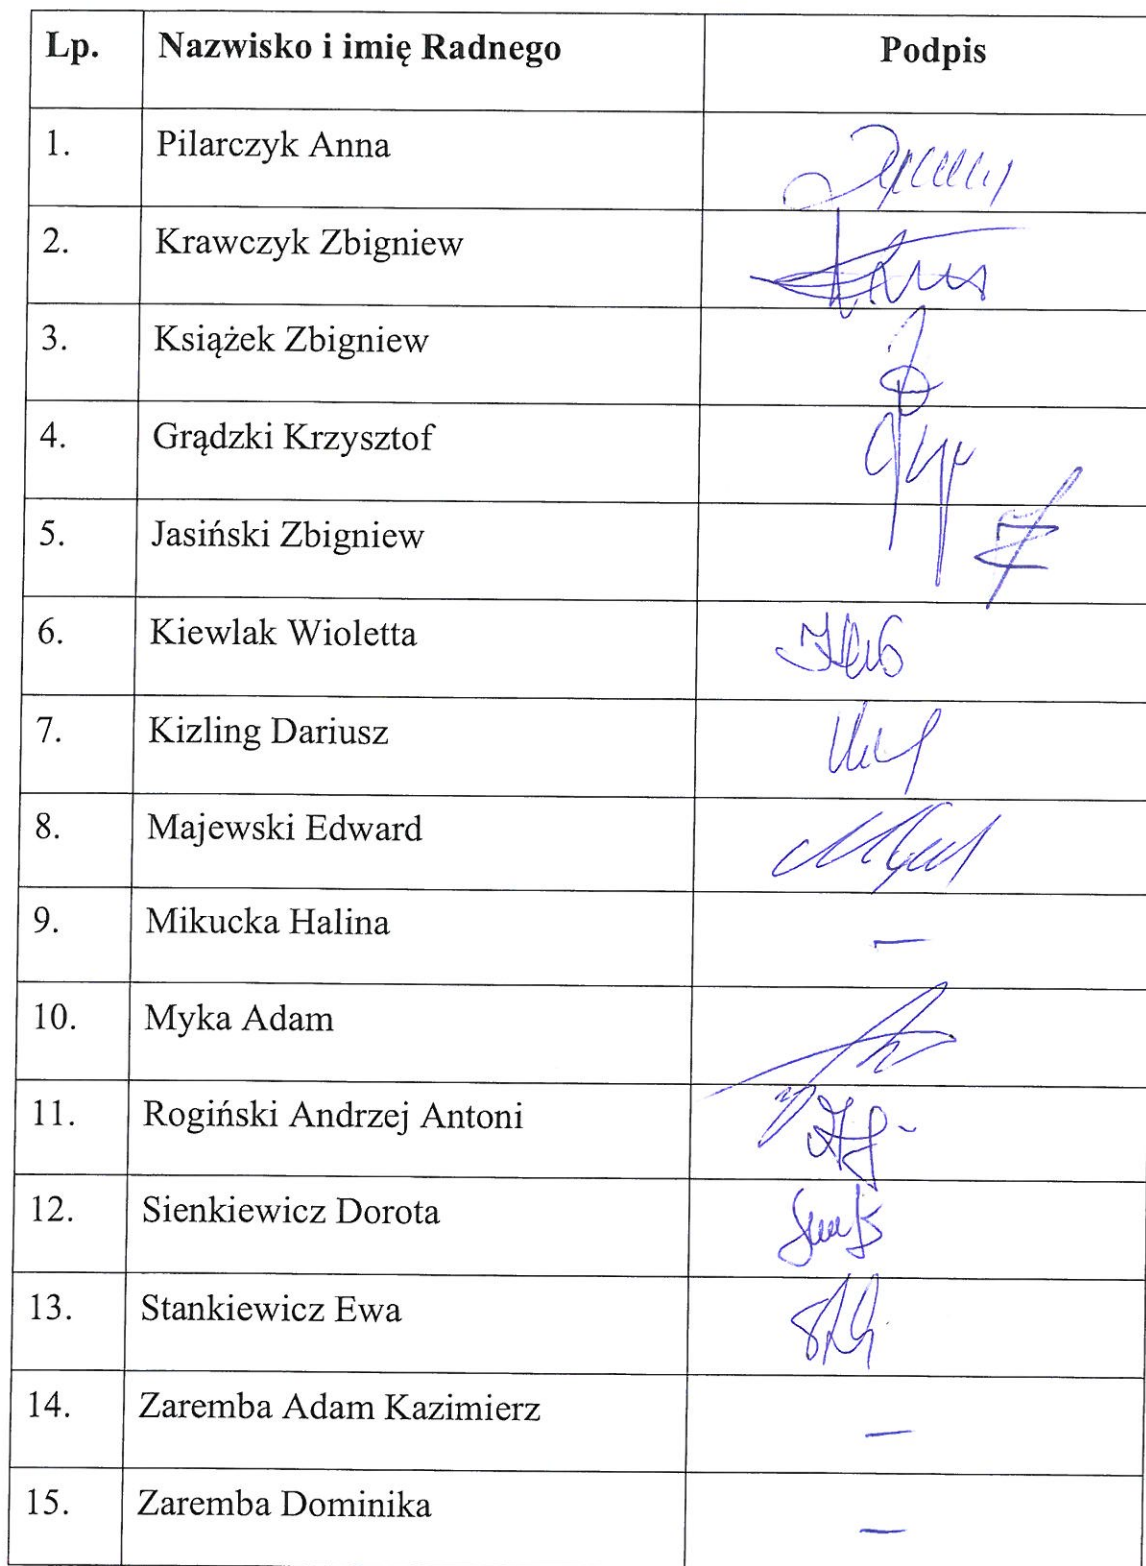 Lp. Nazwisko i imię Radnego Podpis
1. Pilarczyk Anna
2. Krawczyk Zbigniew
3. Książek Zbigniew
4. Grądzki Krzysztof
5. Jasiński Zbigniew
6. Kiewlak Wioletta
7. Kizling Dariusz
8. Majewski Edward
9. Mikucka Halina —
10. Myka Adam
11. Rogiński Andrzej Antoni
12. Sienkiewicz Dorota
13. Stankiewicz Ewa
14. Zaremba Adam Kazimierz —
15. Zaremba Dominika —